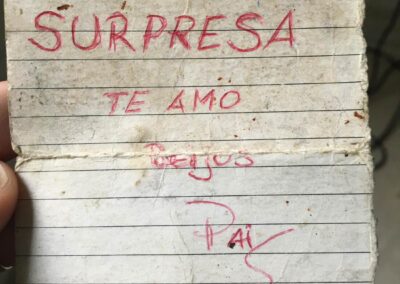 SURPRESA
TE AMO
Beijos
Pai